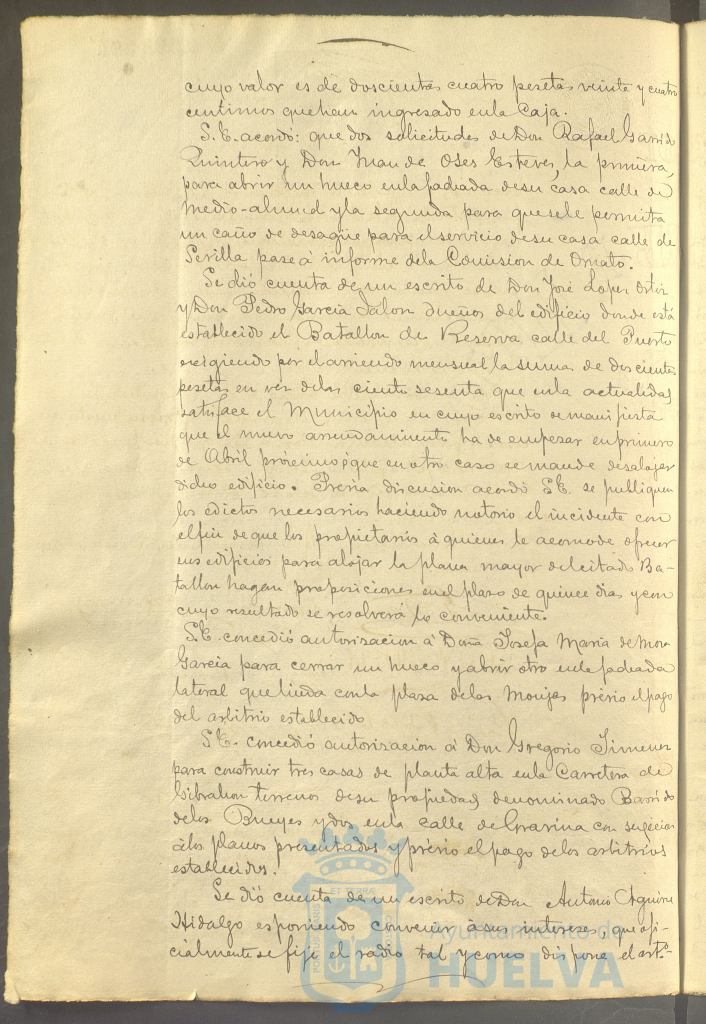 cuyo valor es de doscientas cuatro pesetas veinte y cuatro
centimos que han ingresado en la Caja.
S. E. acordó: que dos solicitudes de Don Rafael Garrido
Quintero y Don Juan de Oses Esteves, la primera,
para abrir un hueco en la fachada de su casa calle de
Medio-almud y la segunda para que se le permita
un caño de desagüe para el servicio de su casa calle de
Sevilla pase á informe de la Comision de Ornato.
Se dió cuenta de un escrito de Don José Lopez Ortiz
y Don Pedro Garcia Jalon dueños del edificio donde está
establecido el Batallon de Reserva calle del Puerto
exigiendo por el arriendo mensual la suma de doscientas
pesetas en vez de las ciento sesenta que en la actualidad
satisface el Municipio en cuyo escrito se manifiesta
que el nuevo arrendamiento ha de empesar en primero
de Abril próximo; que en otro caso se mande desalojar
dicho edificio. Previa discusion acordó S. E. se publiquen
los edictos necesarios haciendo notorio el incidente con
el fin de que los propietarios á quienes le acomode ofrecer
sus edificios para alojar la plana mayor del citado Ba-
tallon hagan proposiciones en el plazo de quince dias y con
cuyo resultado se resolverá lo conveniente.
S. E. concedió autorizacion á Doña Josefa Maria de Mora
Garcia para cerrar un hueco y abrir otro en la fachada
lateral que linda con la plaza de las Monjas prévio el pago
del arbitrio establecido
S. E. concedió autorizacion á Don Gregorio Jimenez
para construir tres casas de planta alta en la Carretera de
Gibraleon terrenos de su propiedad denominado Barrido
de los Bueyes y dos en la calle de Gravina con sugecion
á los planos presentados y prévio el pago de los arbitrios
establecidos.
Se dió cuenta de un escrito de Don Antonio Aguirre
Hidalgo esponiendo convenir á sus intereses, que ofi-
cialmente se fije el radio tal y como dispone el artº
Ayuntamiento de
HUELVA